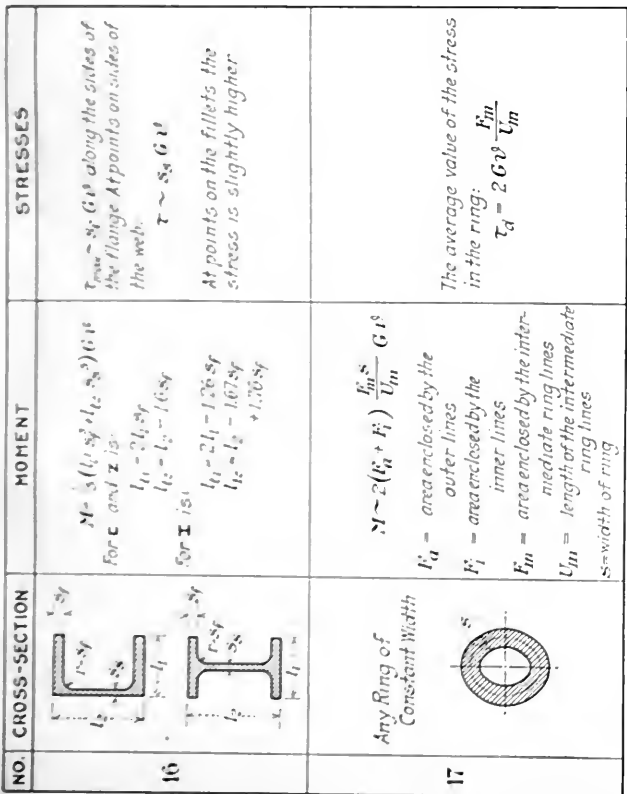 NO.
CROSS-SECTION
MOMENT
STRESSES
16
l₂
r=s_f
s_s
s_f
l₁
l₂
r=s_f
s_s
s_f
l₁
M~⅓(l_{t1} s_f³ + l_{t2} s_s³) G ϑ
For ⊏ and Z is:
l_{t1} = 2l₁-s_f
l_{t2} = l₂-1.6s_f
For I is:
l_{t1} = 2l₁-1.26s_f
l_{t2} = l₂-1.67s_f
+1.76s_f
τ_max ~ s_f G ϑ along the sides of
the flange At points on sides of
the web:
τ ~ s_s G ϑ
At points on the fillets the
stress is slightly higher
17
Any Ring of
Constant Width
s
M~2(F_a + F_i) F_m s / U_m G ϑ
F_a = area enclosed by the
outer lines
F_i = area enclosed by the
inner lines
F_m = area enclosed by the inter-
mediate ring lines
U_m = length of the intermediate
ring lines
s=width of ring
The average value of the stress
in the ring:
τ_d = 2 G ϑ F_m / U_m